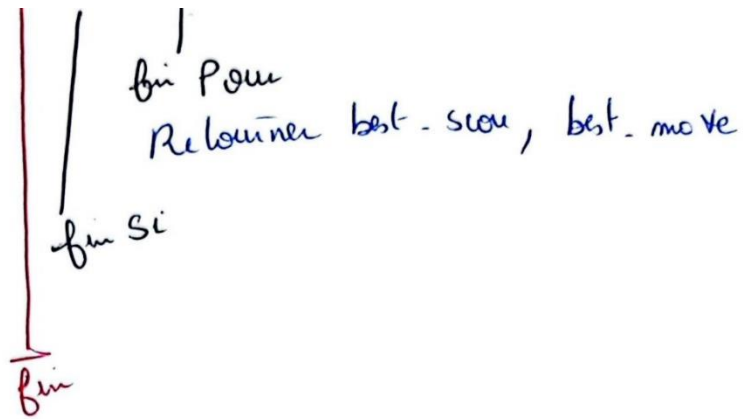 fin Pour
Retourner best_score, best_move
fin Si
fin